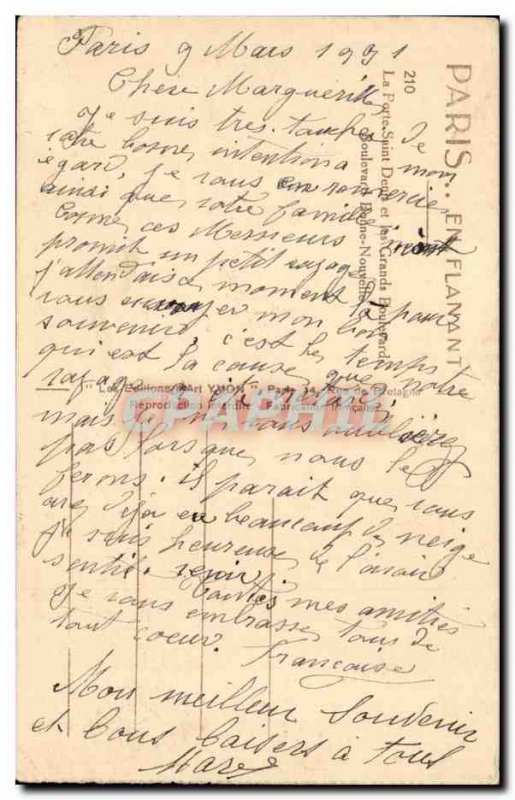 Paris 9 Mars 1931
Chère Marguerite
Je suis très touchée de
votre bonne intention à mon
égard, je vous en remercie
ainsi que votre famille
Comme ces Messieurs
promit un petit voyage
j'attendais moment pour
vous envoyer mon bon
souvenir, c'est le temps
qui est la cause que notre
mais
pas lorsque nous le
ferons. Il parait que vous
avez déjà eu beaucoup de neige
Je suis heureuse de
sentir venir
Toutes mes amitiés
Je vous embrasse tous de
tout coeur.
Françoise
Mon meilleur Souvenir
et bons baisers à tous
PARIS.. EN FLANANT
210
La Porte Saint Denis et les Grands Boulevards
Boulevard Bonne-Nouvelle
"Les Editions d'Art YVON" Paris 14, Rue de Bretagne
Reproduction interdite Fabrication française
CPAPHIL